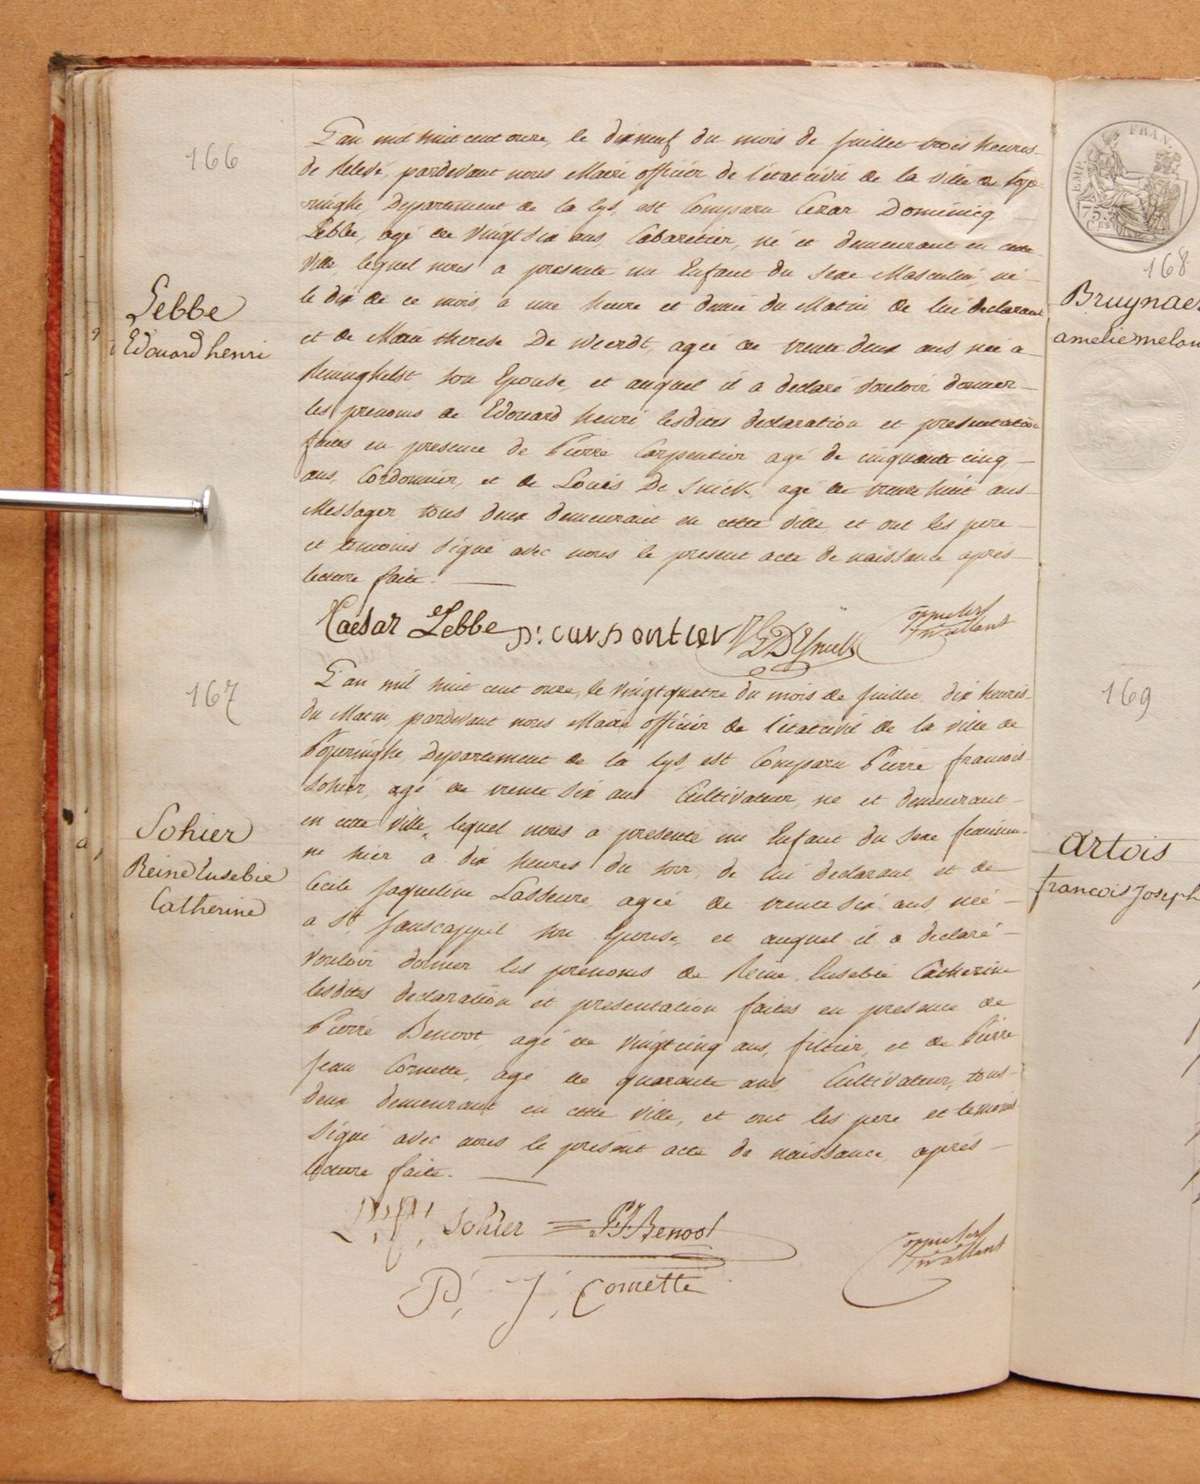 166
L'an mil huit cent onze, le dixneuf du mois de juillet trois heures
de relevé, pardevant nous Maire officier de l'état civil de la ville de Pope
ringhe, Departement de la Lys, est Comparu Cezar Dominicq
Lebbe, agé de vingt six ans, Cabaretier, né et demeurant en cette
ville, lequel nous a presenté un Enfant du Sexe Masculin, né
le dix de ce mois à une heure et demie du Matin de lui declarant
et de Marie therese De Weerdt, agée de trente deux ans née a
Reninghelst son Epouse, et auquel il a declaré vouloir donner
les prenoms de Edouard henri lesdites declaration et presentation
faites en presence de Pierre Carpentier agé de cinquante cinq
ans, Cordonnier, et de Louis De Snick agé de trente huit ans
Messager tous deux demeurant en cette ville et ont les pere
et temoins signé avec nous le present acte de naissance après
lecture faite.
Lebbe
Edouard henri
Caesar Lebbe p: carpontier
167
L'an mil huit cent onze, le vingt quatre du mois de juillet dix heures
du Matin, pardevant nous Maire officier de l'état civil de la ville de
Poperinghe Departement de la Lys, est Comparu Pierre francois
Sohier, agé de trente six ans Cultivateur, né et demeurant
en cette ville, lequel nous a presenté un Enfant du Sexe feminin
né hier à dix heures du soir, de lui declarant et de
Cecile Jaqueline Lasseure agée de trente six ans, née
a St. Janscappel son Epouse, et auquel il a declaré
vouloir donner les prenoms de Reine Eusebie Catherine
lesdites declaration et presentation faites en presence de
Pierre Benoot, agé de vingt cinq ans, filtier, et de Pierre
Jean Cornette, agé de quarante ans Cultivateur, tous
deux demeurant en cette ville, et ont les pere et temoins
signé avec nous le present acte de naissance après
lecture faite.
Sohier
Reine Eusebie
Catherine
P. f. Sohier P J Benoot
P. J. Cornette
FRAN
75
168
Bruynae
amelie melan
169
Artois
francois Joseph